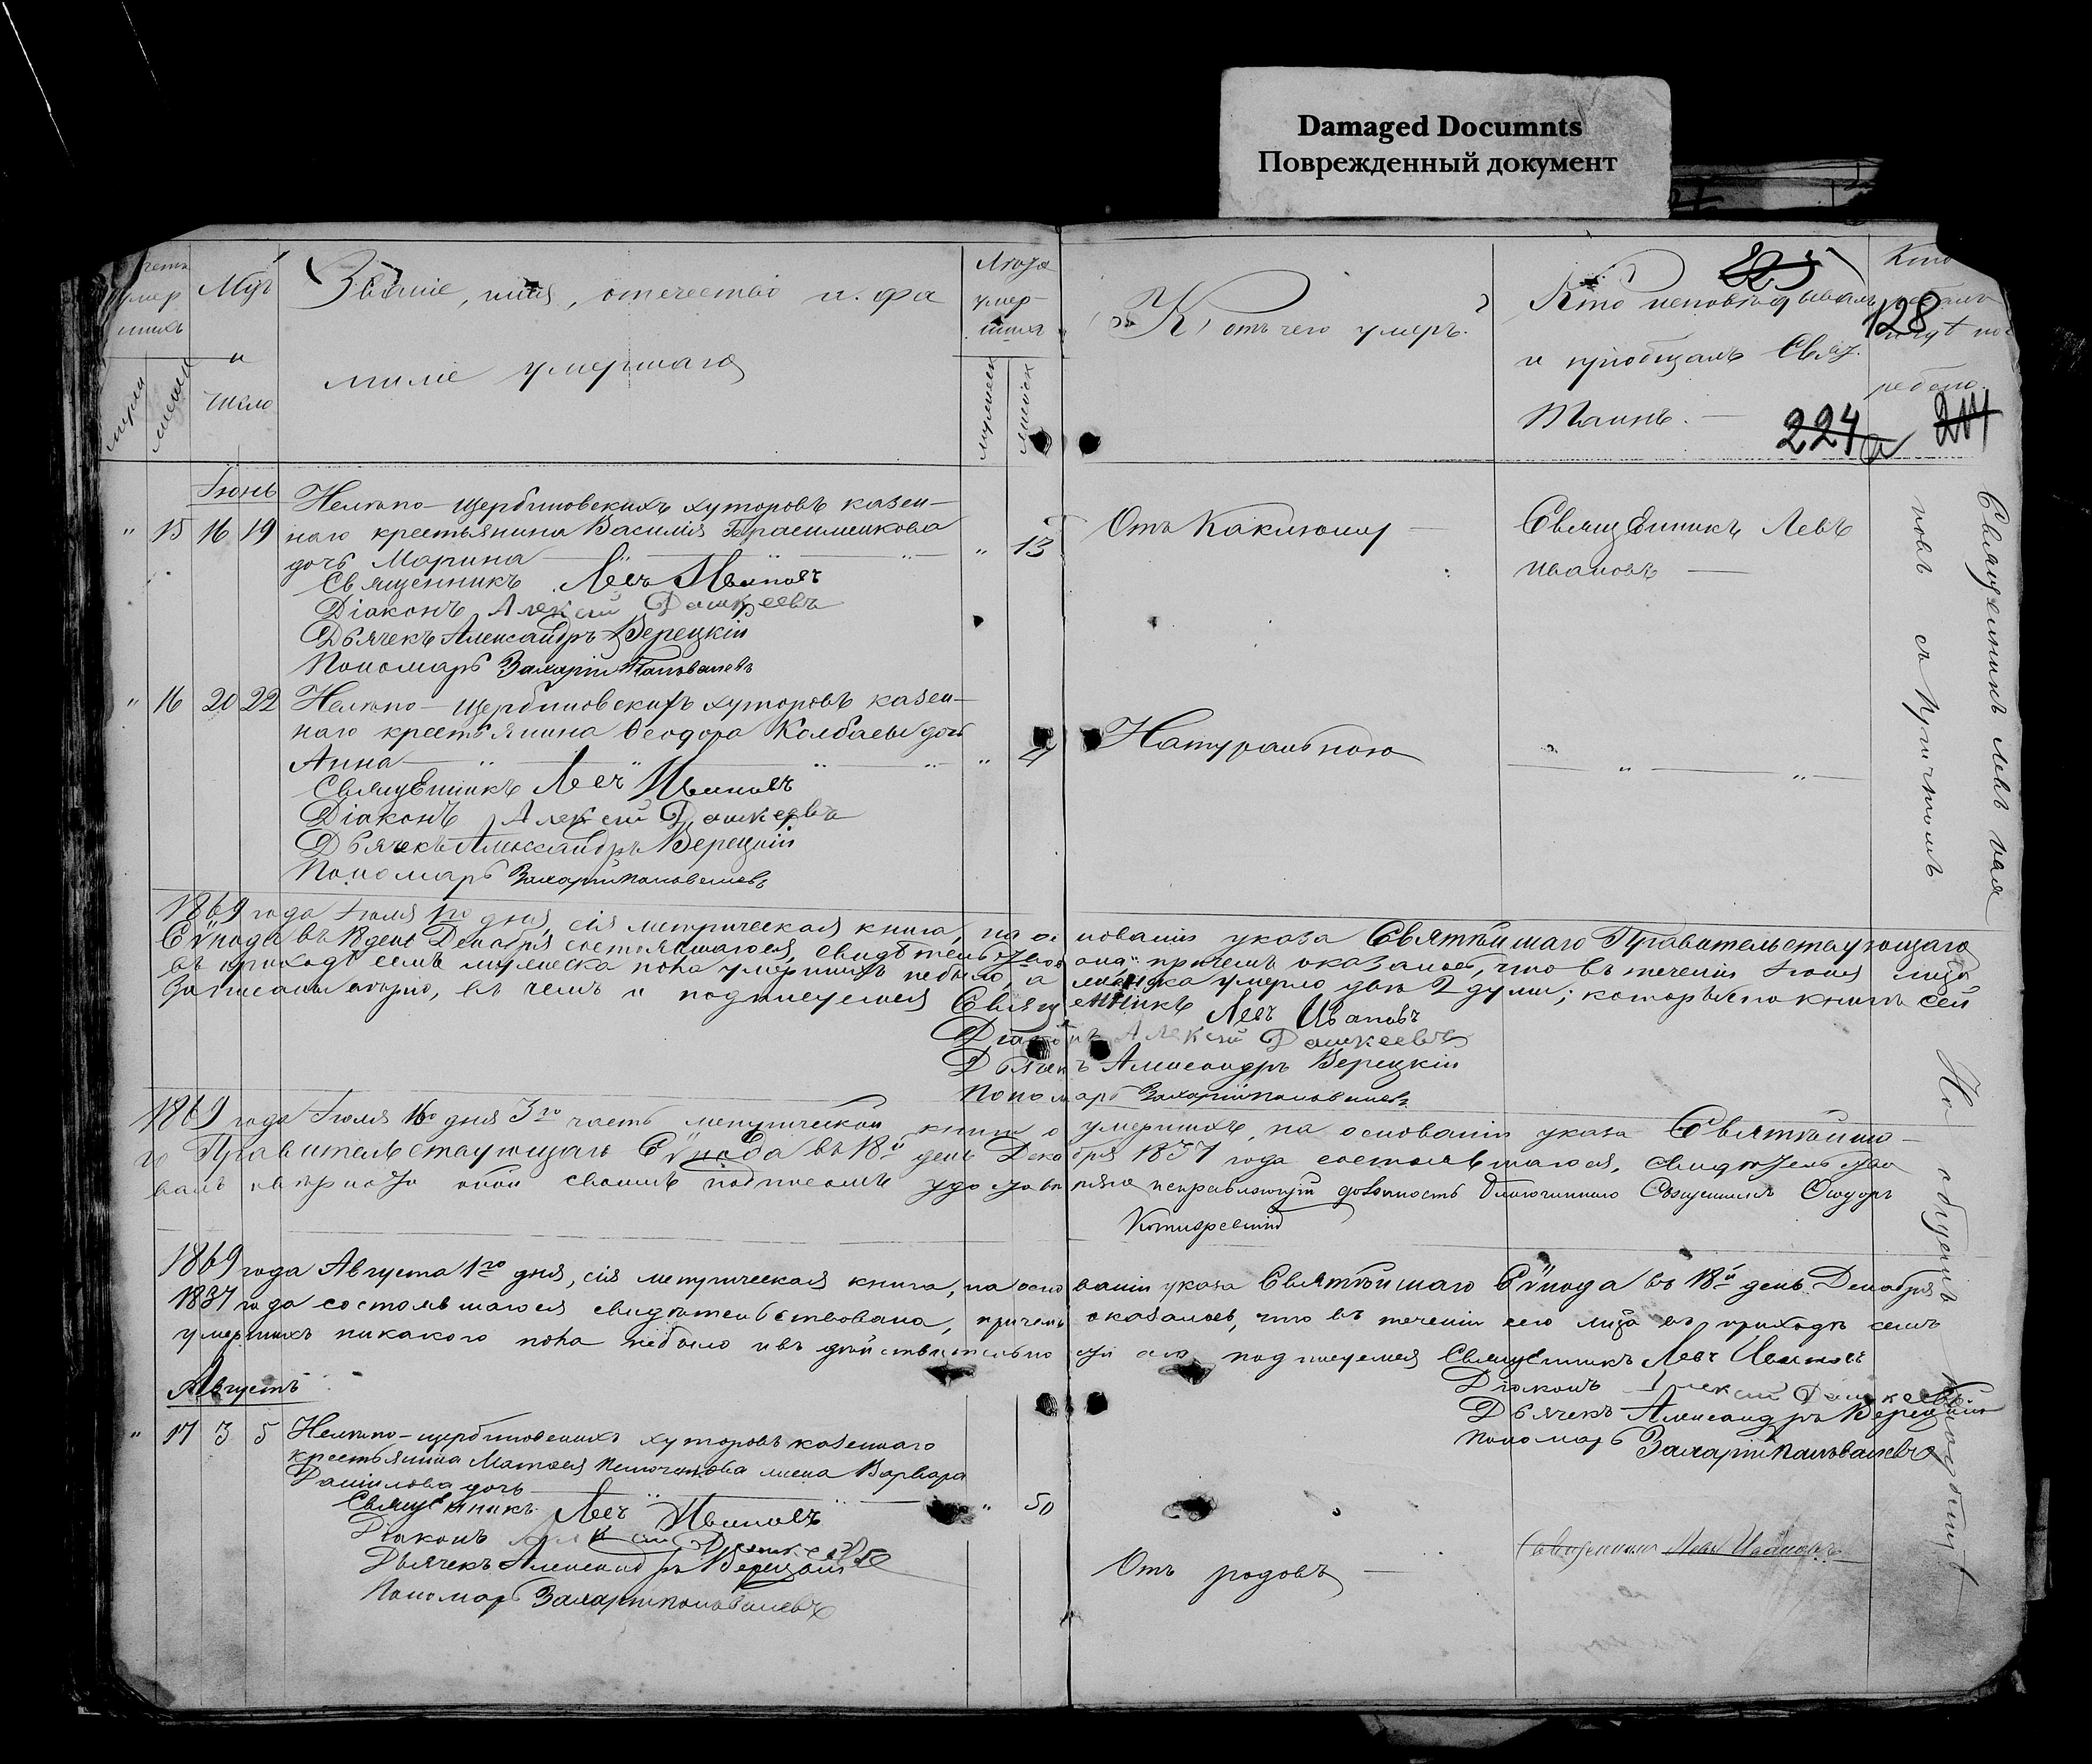 Damaged Documnts
Поврежденный документ
умер
шихъ
Мцъ
и
Число
Званіе, имя, отечество и фа
миліе умершаго
Лѣта
умер-
шихъ
отъ чего умеръ.
Кто исповѣдывалъ
и пріобщалъ Свят.
Таинъ. —
225
128
224 а
214
Іюнь
Нелѣпо-Щербиновскихъ хуторовъ казен-
" 15 16 19 наго крестьянина Василія Герасименкова
дочь Марина " 13
Отъ Коклюшу —
Священникъ Левъ
Ивановъ —
Священникъ Левъ Ивановъ
Діаконъ Алексій Дашкеевъ
Дьячекъ Александръ Верецкій
Пономарь Захарій
" 16 20 22 Нелѣпо-Щербиновскихъ хуторовъ казен-
наго крестьянина Ѳеодора Колбасы дочь
Анна " " " 4
Натуральною
" " "
Священникъ Левъ Ивановъ
Діаконъ Алексій Дашкеевъ
Дьячекъ Александръ Верецкій
Пономарь Захарій
1869 года Іюля 1го дня, сія метрическая книга, на ос нованіи указа Святѣйшаго Правительствующаго
Сѵнода въ 18 день Декабря состоявшагося, свидѣтельствов ана причемъ оказалось, что въ теченіи Іюня мца
въ приходѣ семъ мужеска пола умершихъ небыло, а женска умерло двѣ 2 души; которые по книгѣ сей
записаны вѣрно, въ чемъ и подписуемся Священникъ Левъ Ивановъ
Діаконъ Алексій Дашкеевъ
Дьячекъ Александръ Верецкій
Пономарь Захарій
1869 года Іюля 16го дня 3го часть метрической книги о умершихъ, на основаніи указа Святѣйша-
го Правительствующаго Сѵнода въ 18й день Дека бря 1837 года состоявшагося, свидѣтельство
валъ своимъ подписомъ удостовѣ ряю исправляющій должность Благочиннаго Священникъ Ѳеодоръ
1869 года Августа 1го дня, сія метрическая книга, на осно ваніи указа Святѣйшаго Сѵнода въ 18й день Декабря
1837 года состоявшагося свидѣтельствована, причемъ оказалось, что въ теченіи сего мца въ приходѣ семъ
умершихъ никакого пола небыло подписуемся Священникъ Левъ Ивановъ
Діаконъ Алексій Дашкеевъ
Дьячекъ Александръ Верецкій
Пономарь Захарій
Августъ
" 17 3 5 Нелѣпо-щербиновскихъ хуторовъ казеннаго
крестьянина Матѳея жена Варвара
Даніилова дочь " 50
Священникъ Левъ Ивановъ
Діаконъ
Дьячекъ Александръ Верецкій
Пономарь Захарій
Отъ родовъ —
Священникъ Левъ Ивановъ
Священникъ Левъ Ива
новъ съ Причтомъ
На общемъ кладбищѣ